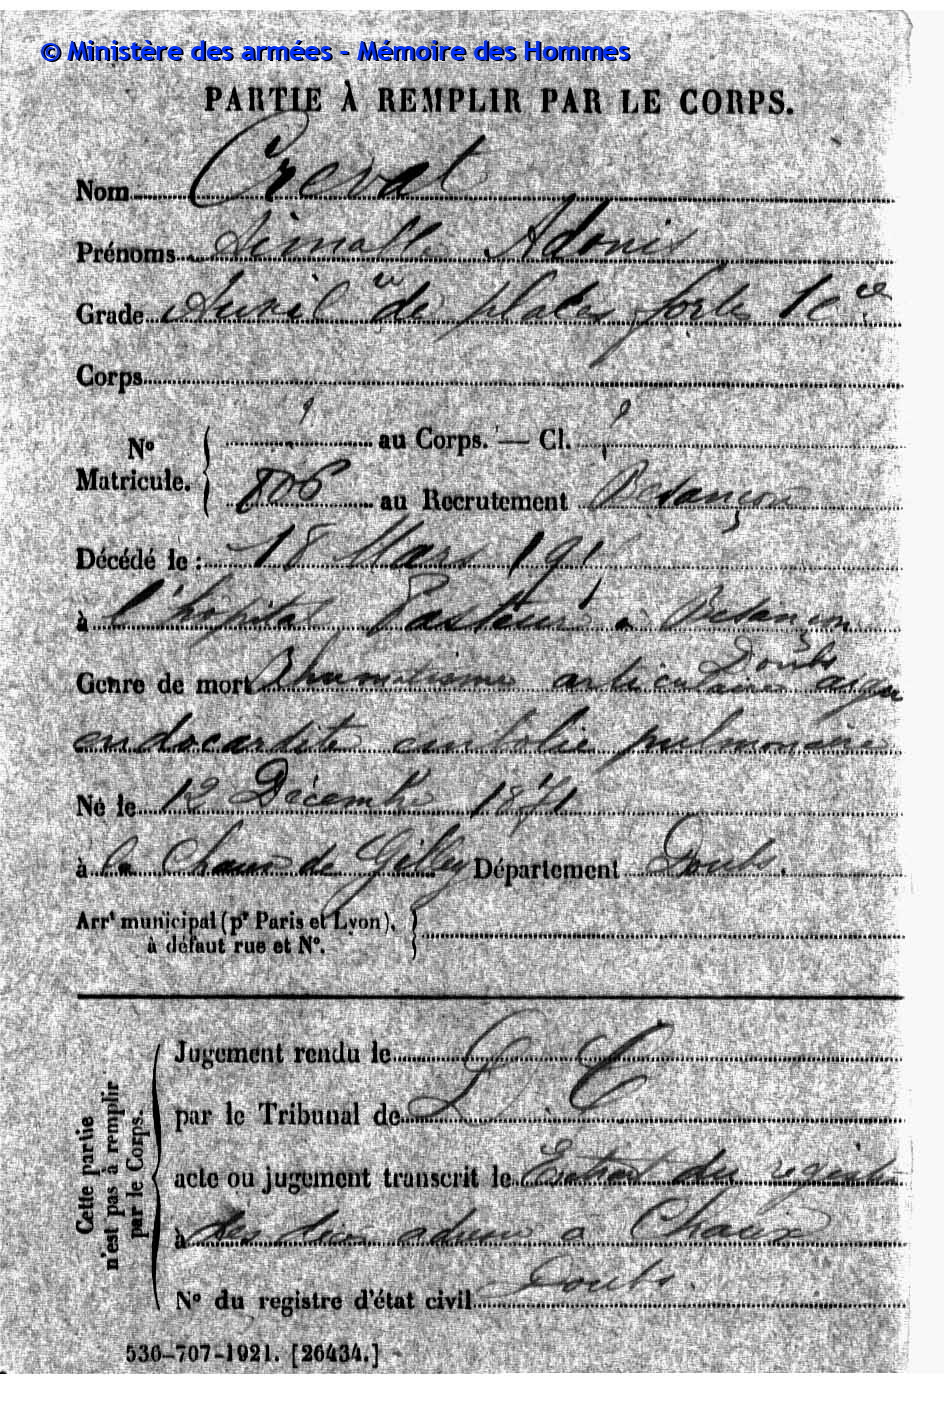 © Ministère des armées - Mémoire des Hommes
PARTIE À REMPLIR PAR LE CORPS.
Nom Creval
Prénoms Adonis
Grade Auxil re de places fortes 1e cie
Corps
No Matricule. { ? au Corps. — Cl. ?
806 au Recrutement Besançon
Décédé le : 18 Mars 191
à l'hôpital Pasteur à Besançon
Doubs
Genre de mort Rhumatisme articulaire aigu
endocardite embolie pulmonaire
Né le 12 Décembre 1871
à la Chaux de Gilley Département Doubs.
Arrt municipal (pr Paris et Lyon),
à défaut rue et No.
Cette partie
n'est pas à remplir
par le Corps.
Jugement rendu le D C
par le Tribunal de
acte ou jugement transcrit le Extrait du registre
à des décès adressé à Chaux
Doubs.
No du registre d'état civil
530-707-1921. [26434.]